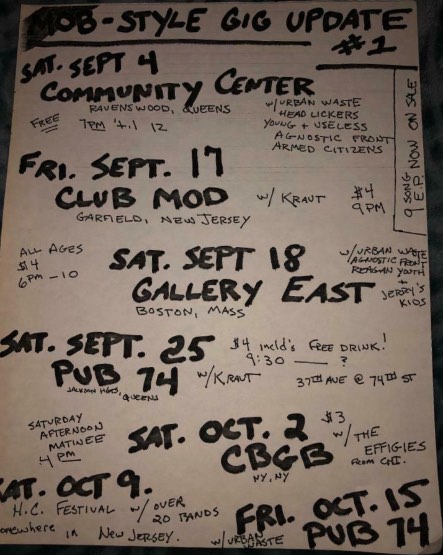 MOB-STYLE GIG UPDATE
#1
SAT. SEPT 4
COMMUNITY CENTER
RAVENSWOOD, QUEENS
FREE 7PM 't.l 12
w/URBAN WASTE
HEAD LICKERS
YOUNG + USELESS
AGNOSTIC FRONT
ARMED CITIZENS
9 SONG E.P. NOW ON SALE
FRI. SEPT. 17
CLUB MOD
GARFIELD, NEW JERSEY
w/ KRAUT
$4
9PM
ALL AGES
$4
6PM - 10
SAT. SEPT 18
GALLERY EAST
BOSTON, MASS
w/URBAN WASTE
AGNOSTIC FRONT
REAGAN YOUTH
+ JERRY'S
KIDS
SAT. SEPT. 25
PUB 74
JACKSON HGTS, QUEENS
w/KRAUT
$4 incld's FREE DRINK!
9:30 — ?
37TH AVE @ 74TH ST
SATURDAY
AFTERNOON
MATINEE
4 PM
SAT. OCT. 2
CBGB
NY, NY
$3
w/ THE
EFFIGIES
FROM CHI.
SAT. OCT 9.
H.C. FESTIVAL w/ OVER
20 BANDS
omewhere in New JERSEY.
FRI. OCT. 15
w/URBAN
WASTE
PUB 74